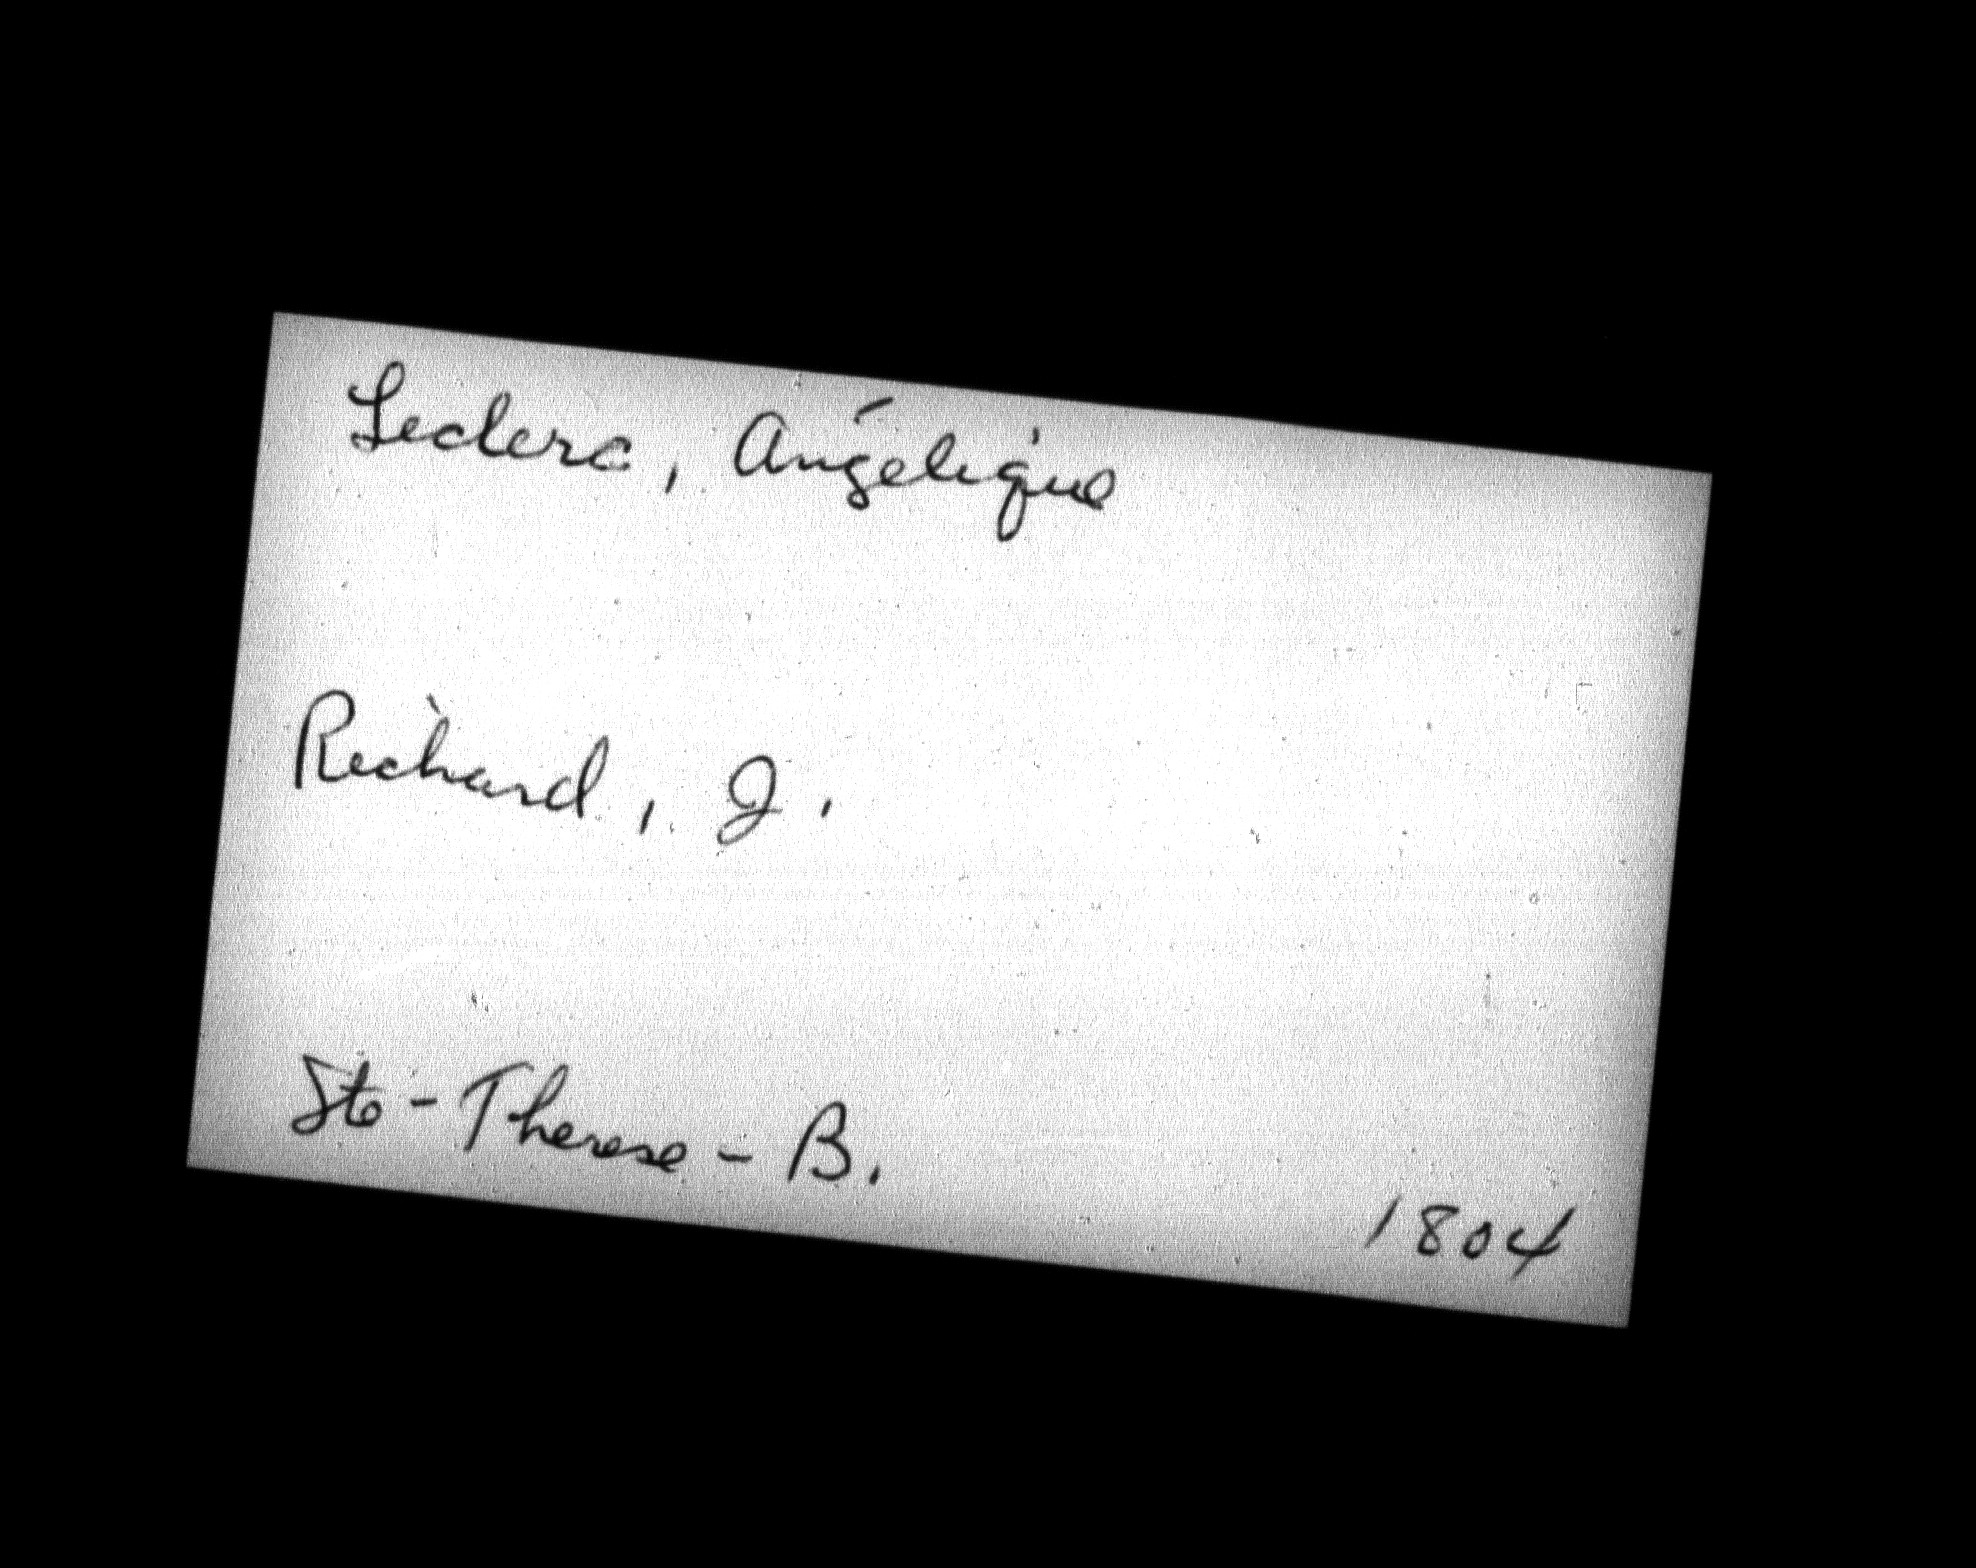 Leclerc, Angélique
Richard, J.
Ste-Therese-B.
1804